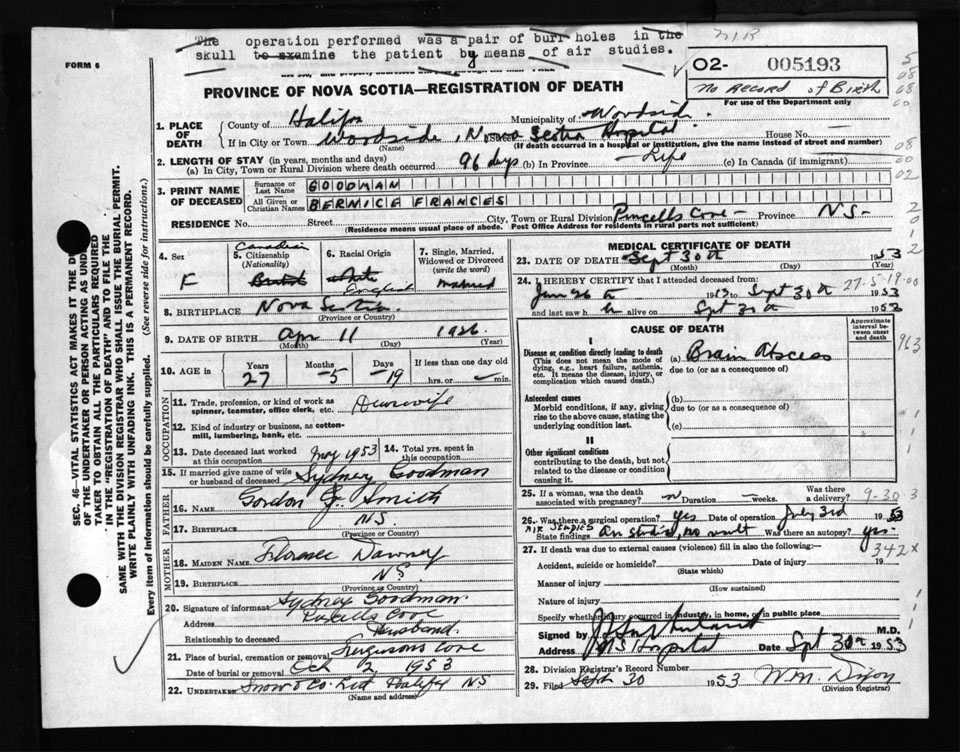 The operation performed was a pair of burr holes in the
skull to examine the patient by means of air studies.
FORM 6
O2- 005193
No Record of Birth
For use of the Department only
PROVINCE OF NOVA SCOTIA—REGISTRATION OF DEATH
1. PLACE OF DEATH
County of Halifax Municipality of Woodside
If in City or Town Woodside, Nova Scotia Hospital House No. —
(Name) (If death occurred in a hospital or institution, give the name instead of street and number)
2. LENGTH OF STAY (in years, months and days)
(a) In City, Town or Rural Division where death occurred 96 days (b) In Province — Life (c) In Canada (if immigrant)
3. PRINT NAME OF DECEASED
Surname or Last Name GOODMAN
All Given or Christian Names BERNICE FRANCES
RESIDENCE No. Street City, Town or Rural Division Purcells Cove — Province NS-
(Residence means usual place of abode. Post Office Address for residents in rural parts not sufficient)
4. Sex F
5. Citizenship (Nationality) Canadian
6. Racial Origin English
7. Single, Married, Widowed or Divorced (write the word) Married
8. BIRTHPLACE Nova Scotia
(Province or Country)
9. DATE OF BIRTH Apr 11 1926
(Month) (Day) (Year)
10. AGE in Years 27 Months -5 Days -19 If less than one day old
hrs. or — min.
OCCUPATION
11. Trade, profession, or kind of work as spinner, teamster, office clerk, etc. Housewife
12. Kind of industry or business, as cotton-mill, lumbering, bank, etc.
13. Date deceased last worked at this occupation May 1953 14. Total yrs. spent in this occupation
15. If married give name of wife or husband of deceased Sydney Goodman
FATHER
16. Name Gordon J. Smith
17. Birthplace NS
(Province or Country)
MOTHER
18. Maiden Name Florence Dawney
19. Birthplace NS
(Province or Country)
20. Signature of informant Sydney Goodman
Address Purcells Cove
Relationship to deceased Husband.
21. Place of burial, cremation or removal Fergusons Cove
Date of burial or removal Oct 2, 1953
22. Undertaker Snow & Co. Ltd Halifax NS
(Name and address)
MEDICAL CERTIFICATE OF DEATH
23. DATE OF DEATH Sept 30th 1953
(Month) (Day) (Year)
24. I HEREBY CERTIFY that I attended deceased from: 27-5-19-00
June 26th 1953 to Sept 30th 1953
and last saw h alive on Spt 3 1953
CAUSE OF DEATH
Approximate interval between onset and death
I
Disease or condition directly leading to death (a) Brain Abscess
(This does not mean the mode of dying, e.g., heart failure, asthenia, etc. It means the disease, injury, or complication which caused death.)
due to (or as a consequence of)
Antecedent causes
Morbid conditions, if any, giving rise to the above cause, stating the underlying condition last.
(b)
due to (or as a consequence of)
(c)
II
Other significant conditions
contributing to the death, but not related to the disease or condition causing it.
25. If a woman, was the death associated with pregnancy? Duration — weeks. Was there a delivery? 9-30 3
26. Was there a surgical operation? yes Date of operation July 3rd 1953
AIR STUDIES
State findings Was there an autopsy? yes
342x
27. If death was due to external causes (violence) fill in also the following:—
Accident, suicide or homicide? Date of injury 19
(State which)
Manner of injury
(How sustained)
Nature of injury
Specify whether injury occurred in industry, in home, or in public place
Signed by M.D.
Address NS Hospital Date Spt 30th 1953
28. Division Registrar's Record Number
29. Filed Sept 30 1953 W.M. Dixon
(Division Registrar)
SEC. 46—VITAL STATISTICS ACT MAKES IT THE DU
OF THE UNDERTAKER OR PERSON ACTING AS UND
TAKER TO OBTAIN ALL THE PARTICULARS REQUIRED
IN THE "REGISTRATION OF DEATH" AND TO FILE THE
SAME WITH THE DIVISION REGISTRAR WHO SHALL ISSUE THE BURIAL PERMIT.
WRITE PLAINLY WITH UNFADING INK. THIS IS A PERMANENT RECORD.
Every item of information should be carefully supplied. (See reverse side for instructions.)